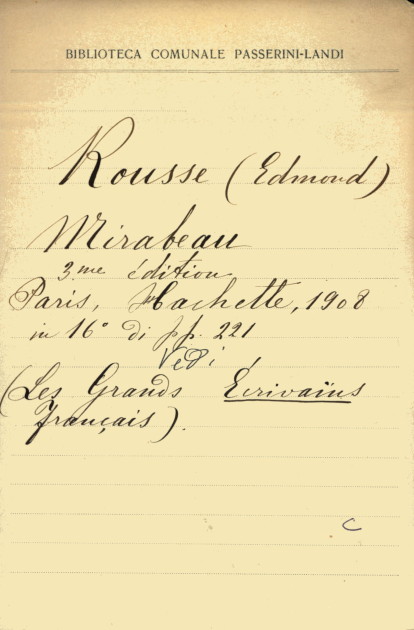 BIBLIOTECA COMUNALE PASSERINI-LANDI
Rousse (Edmond)
Mirabeau
3me édition
Paris, Hachette, 1908
in 16° di pp. 221
Vedi
(Les Grands Écrivains
français).
C